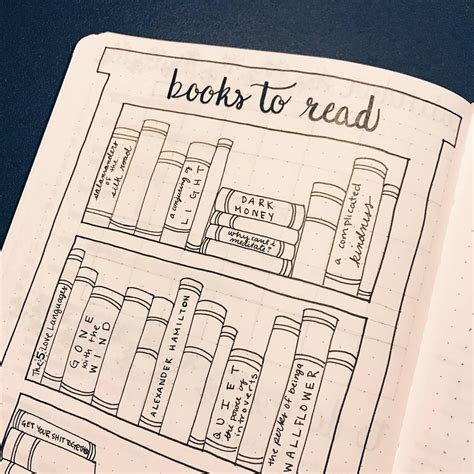 books to read
salamanders
of the
silk road
a conjuring of
LIGHT
DARK
MONEY
why can't i
meditate?
a complicated
kindness
The 5 Love Languages
GONE
with the
WIND
ALEXANDER HAMILTON
QUIET
the power of
introverts
the perks of being a
WALLFLOWER
GET YOUR SHIT TOGETHER